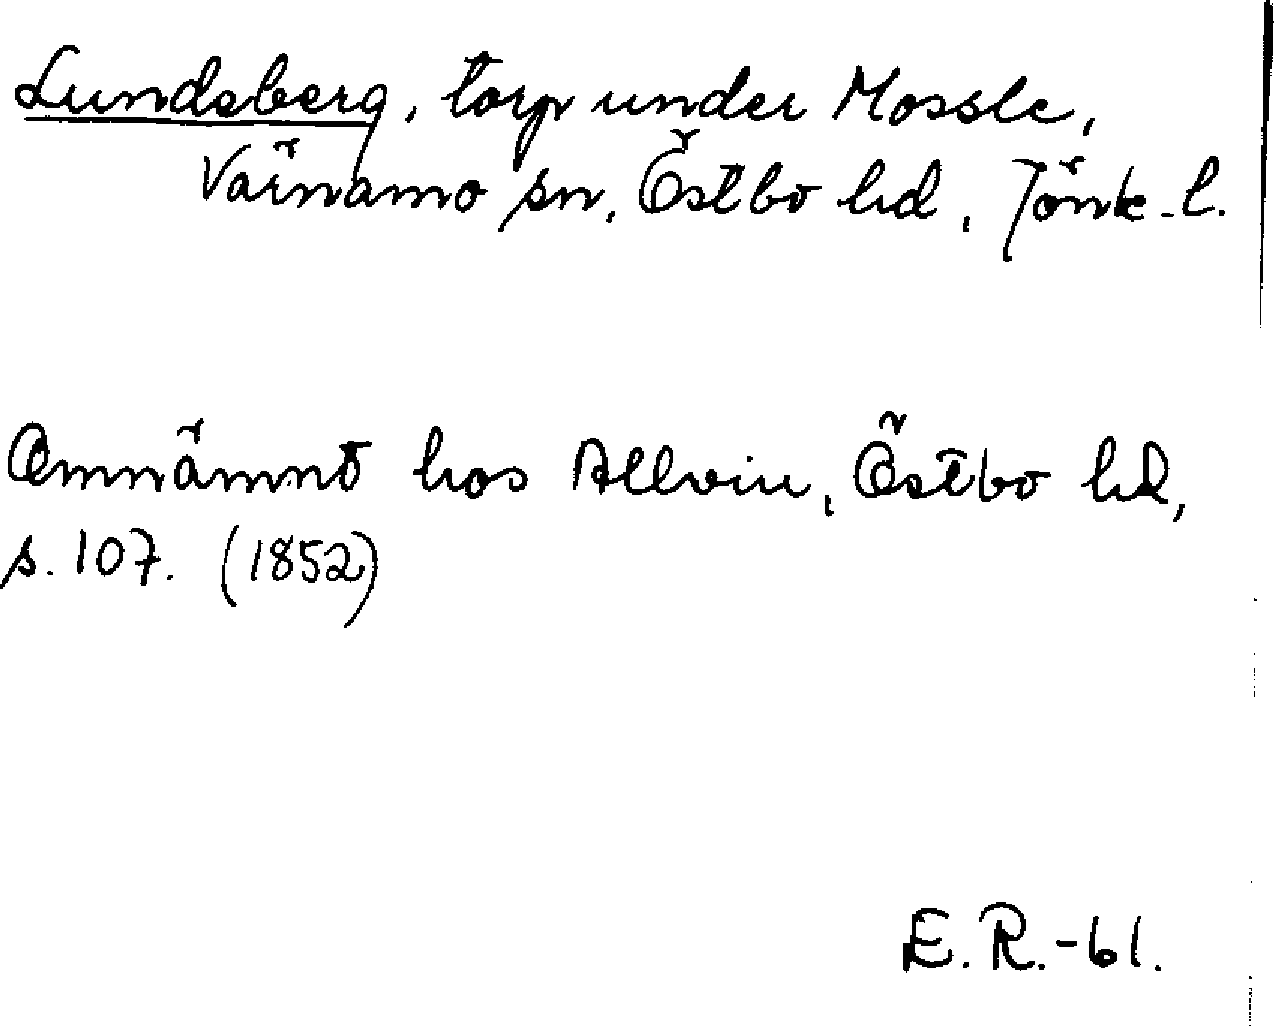 Lundsberg, torp under Mossle,
Värnamo sn, Östbo hd, Jönk. l.
Omnämnt hos Allvin, Östbo hd,
s. 107. (1852)
E.R.-61.